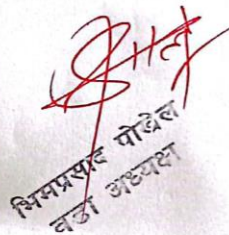 भिमप्रसाद पोख्रेल
वडा अध्यक्ष